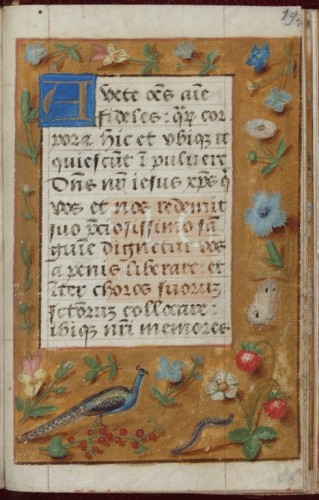 Avete oēs aīe
fideles: qr̄ꝫ cor
pora hic et vbiqꝫ re
quiescūt ī puluere
Dn̄s nr̄ iesus xp̄s q̄
vos et nos redemit
suo p̄ciosissimo sā
guīe dignetur vos
a penis liberare: et
īter choros suoruꝫ
sc̄toruꝫ collocare:
ibiqꝫ nr̄i memores